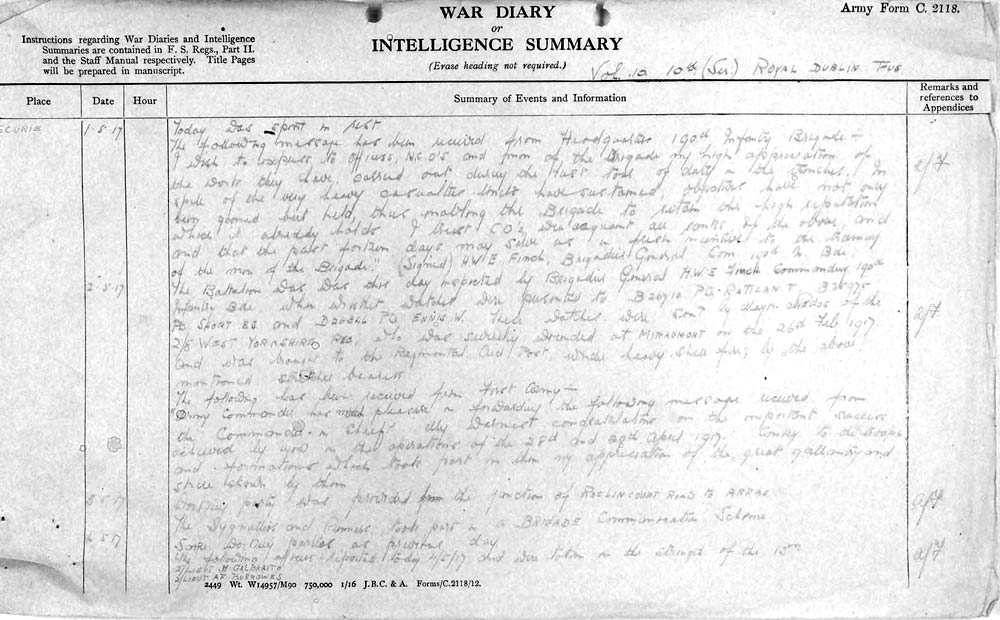 Army Form C. 2118.
WAR DIARY
or
INTELLIGENCE SUMMARY
(Erase heading not required.)
Instructions regarding War Diaries and Intelligence
Summaries are contained in F. S. Regs., Part II.
and the Staff Manual respectively. Title Pages
will be prepared in manuscript.
Vol. 10 10th (Ser) ROYAL DUBLIN FUS
Place Date Hour Summary of Events and Information Remarks and references to Appendices
ECURIE 1.5.17 Today was spent in rest
The following message has been received from Headquarters 190th Infantry Brigade
I wish to express to Officers, N.C.O's and men of the Brigade my high appreciation of
the work they have carried out during the last tour of duty in the trenches. In
spite of the very heavy casualties Units have sustained, objectives have not only
been gained but held, thus enabling the Brigade to retain the high reputation
which it already holds. I trust C.O's will acquaint all ranks of the above, and
and that the past fourteen days may serve as a fresh to the
of the men of the Brigade." (Signed) H.W.E. Finch, Brigadier General, Com 190th In. Bde.
2.5.17 The Battalion was this day inspected by Brigadier General H.W.E. Finch Commanding 190th
Infantry Bde when wristlet watches were presented to
Pte SHORT E.J. and Pte ENNIS W. These watches were sent by of the
2/8 WEST YORKSHIRE REG, who was severely wounded at MIRAUMONT on the 26th Feb 1917
and was brought to the Regimental Aid Post, under heavy shell fire by the above
mentioned stretcher bearers.
The following has been received from First Army
"Army Commander has much pleasure in forwarding the following message received from
the Commander in Chief. My warmest congratulations on the important success
achieved by you in the operations of the 28th and 29th April 1917. Convey to the troops
and formations which took part in them my appreciation of the great gallantry and
shown by them
3.5.17 Working party was provided from the junction of ROCLINCOURT ROAD TO ARRAS
The Signallers and Runners took part in a BRIGADE Communication Scheme
4.5.17 Same working parties as previous day
The following officers reported today 4/5/17 and were taken on the strength of the Bn
2/LIEUT H GALBRAITH
2/LIEUT A.F. BURROWES
2449 Wt. W14957/M90 750,000 1/16 J.B.C. & A. Forms/C.2118/12.